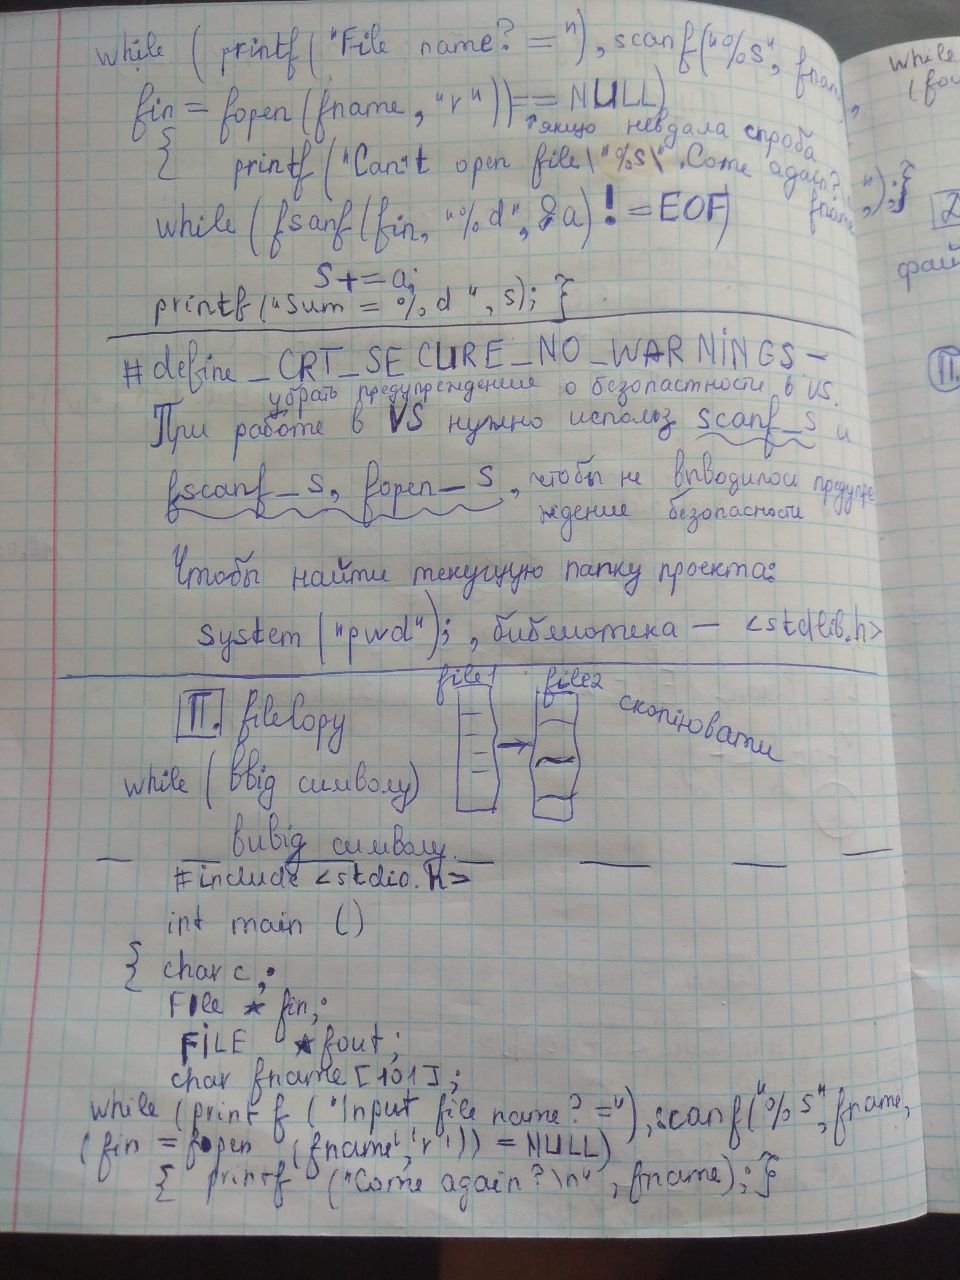 while ( printf ("File name? = "), scanf("%s", fname),
fin = fopen (fname, "r")) == NULL)
↑якщо невдала спроба
{ printf ("Can't open file\"%s\".Come again?\n", fname);}
while (fsanf(fin, "%d", &a) != EOF)
S+=a;
printf("Sum = %d", s); }
#define _CRT_SECURE_NO_WARNINGS –
убрать предупреждение о безопастности в VS.
При работе в VS нужно использ scanf_s и
fscanf_s, fopen_s, чтобы не выводилось предупре
ждение безопасности
Чтобы найти текущую папку проекта:
system ("pwd"); , библиотека – <stdlib.h>
file1 file2
П. fileCopy
скопіювати
while (ввід символу)
вивід символу
#include <stdio.h>
int main ()
{ char c;
FIle * fin;
FILE *fout;
char fname [101];
while (print f ("Input file name? ="), scanf("%s", fname,
(fin = fopen (fname, 'r')) = NULL)
{ printf ("Come again?\n", fname); }
while
(fou
2
фай
П.